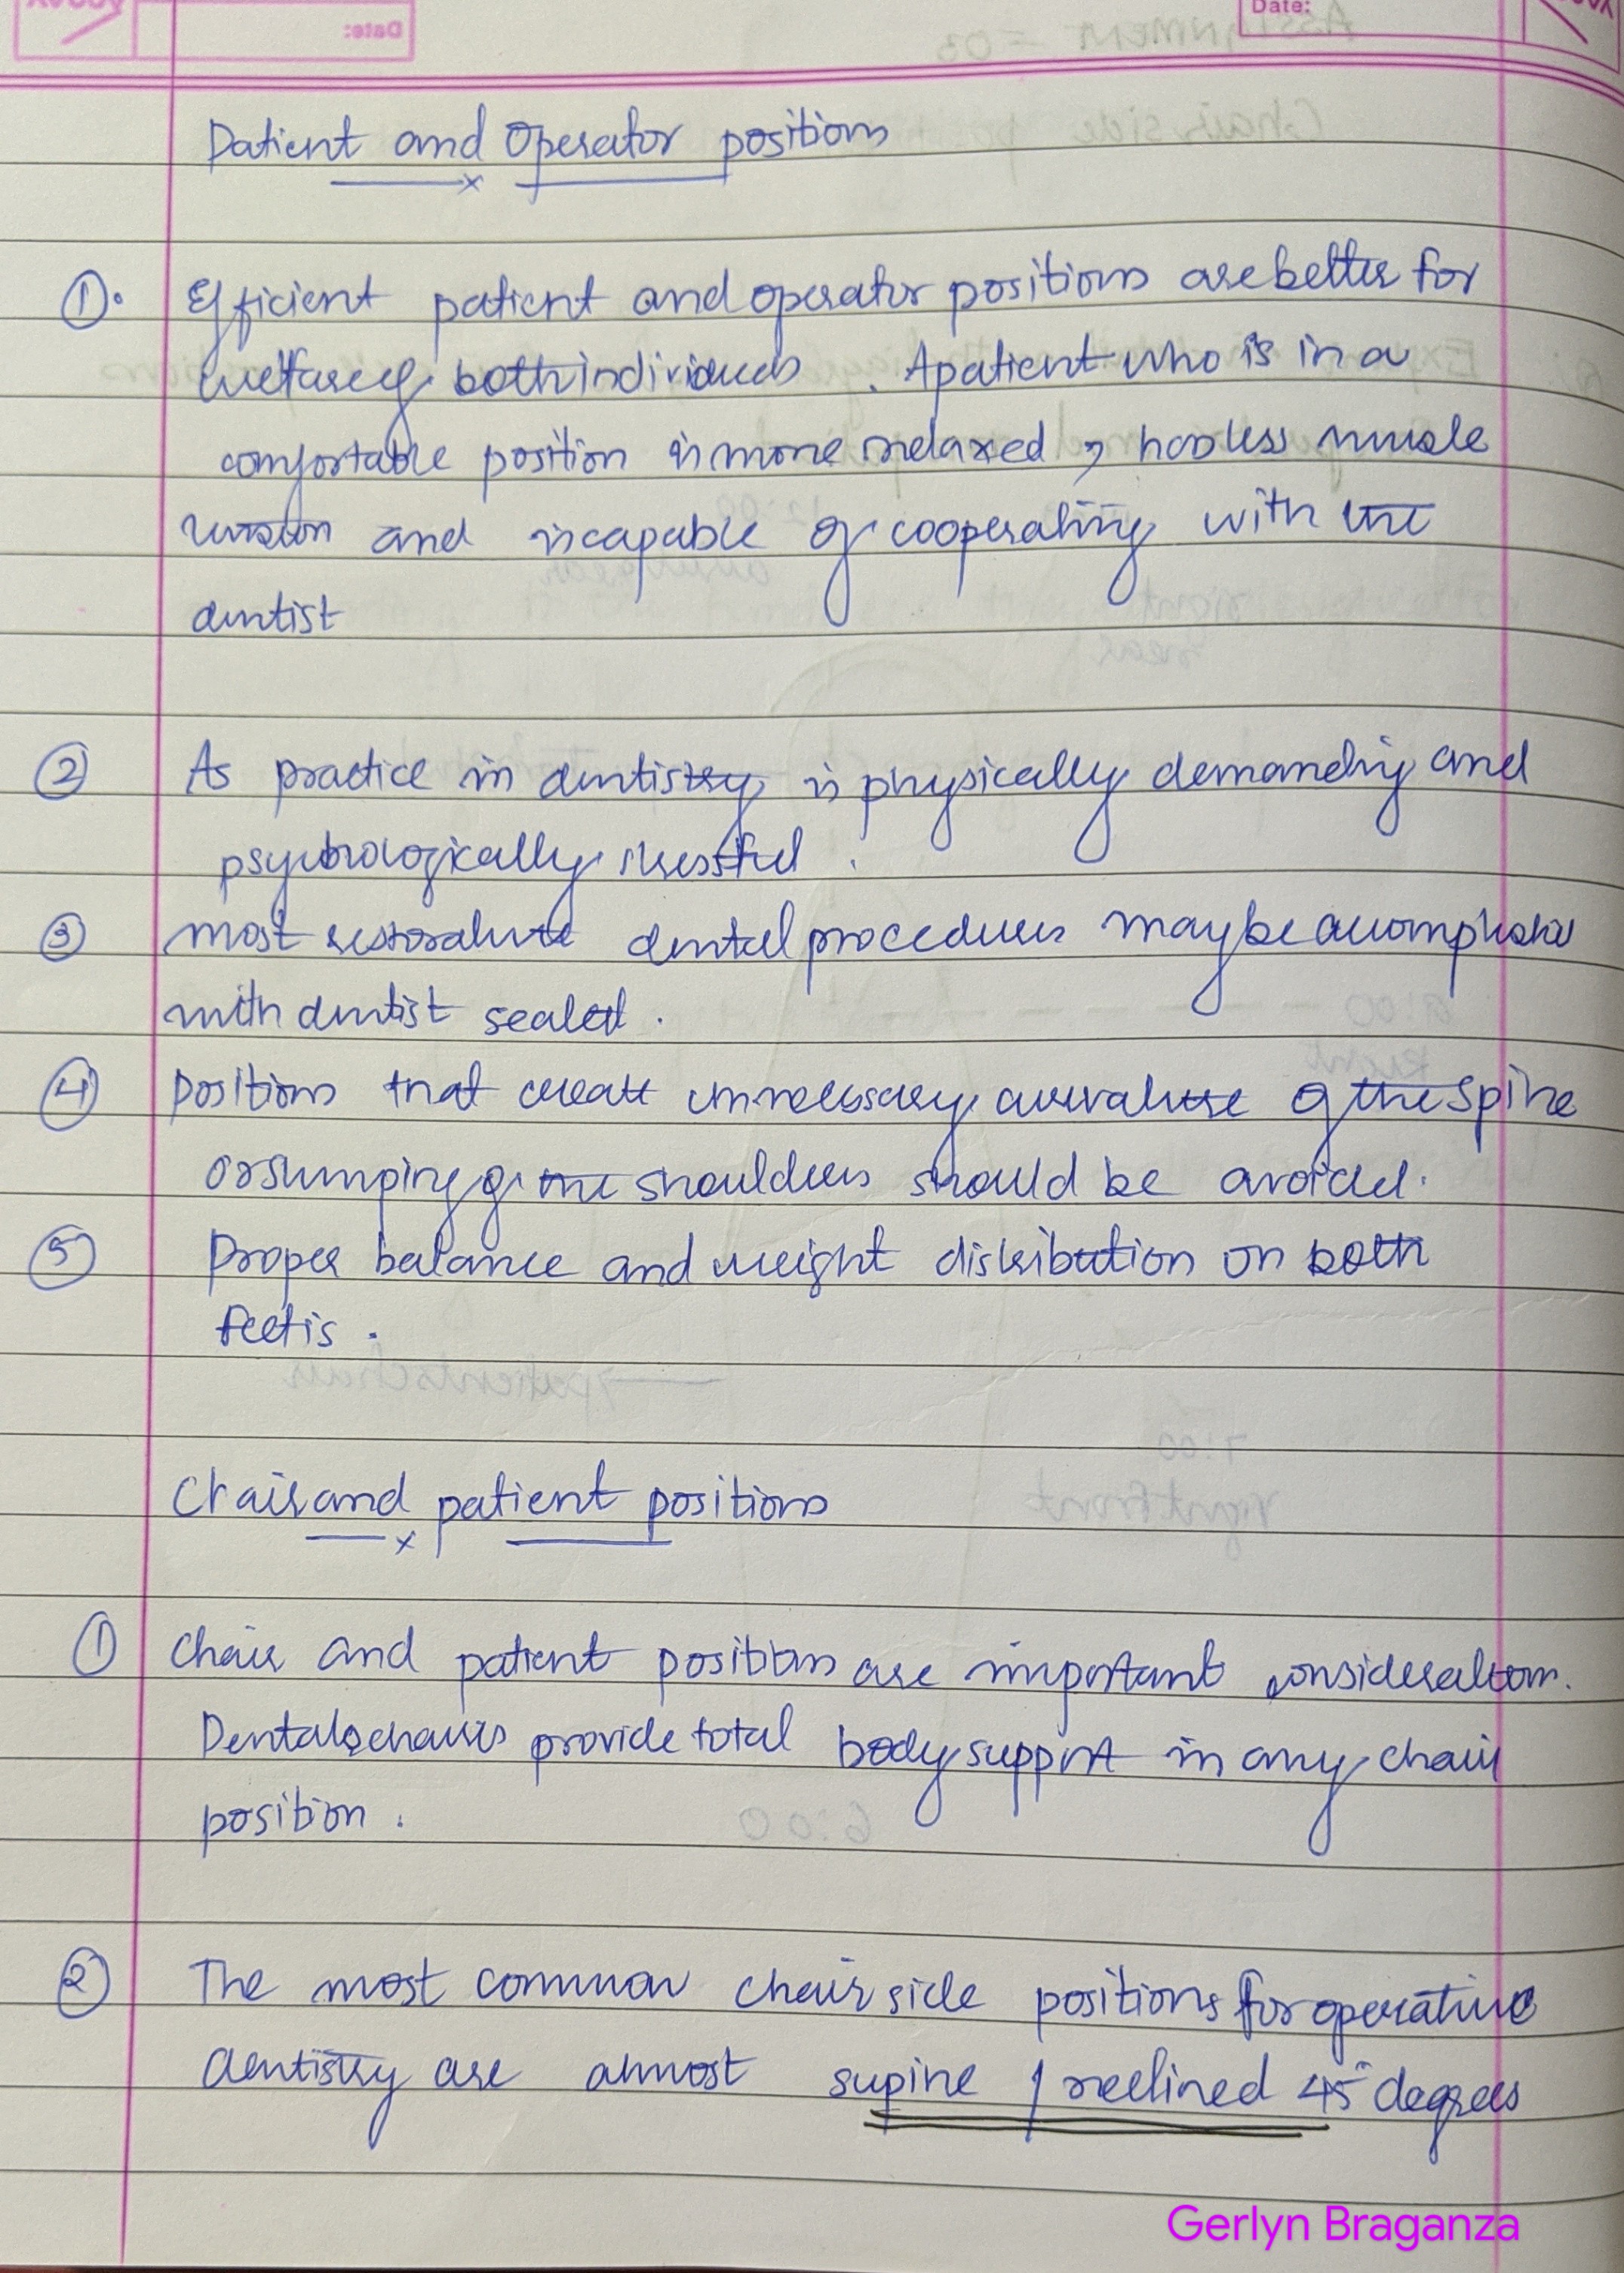 Date:
Patient and Operator positions
①. Efficient patient and operator positions are better for
welfare of both individuals . A patient who is in a
comfortable position is more relaxed , has less muscle
tension and is capable of cooperating with the
dentist
② As practice in dentistry is physically demanding and
psychologically stressful .
③ most restorative dental procedures may be accomplished
with dentist seated .
④ positions that create unnecessary curvature of the spine
or slumping of the shoulders should be avoided .
⑤ Proper balance and weight distribution on both
feet is .
Chair and patient positions
① Chair and patient positions are important consideration .
Dental chairs provide total body support in any chair
position .
② The most common chair side positions for operative
dentistry are almost supine / reclined 45° degrees
Gerlyn Braganza